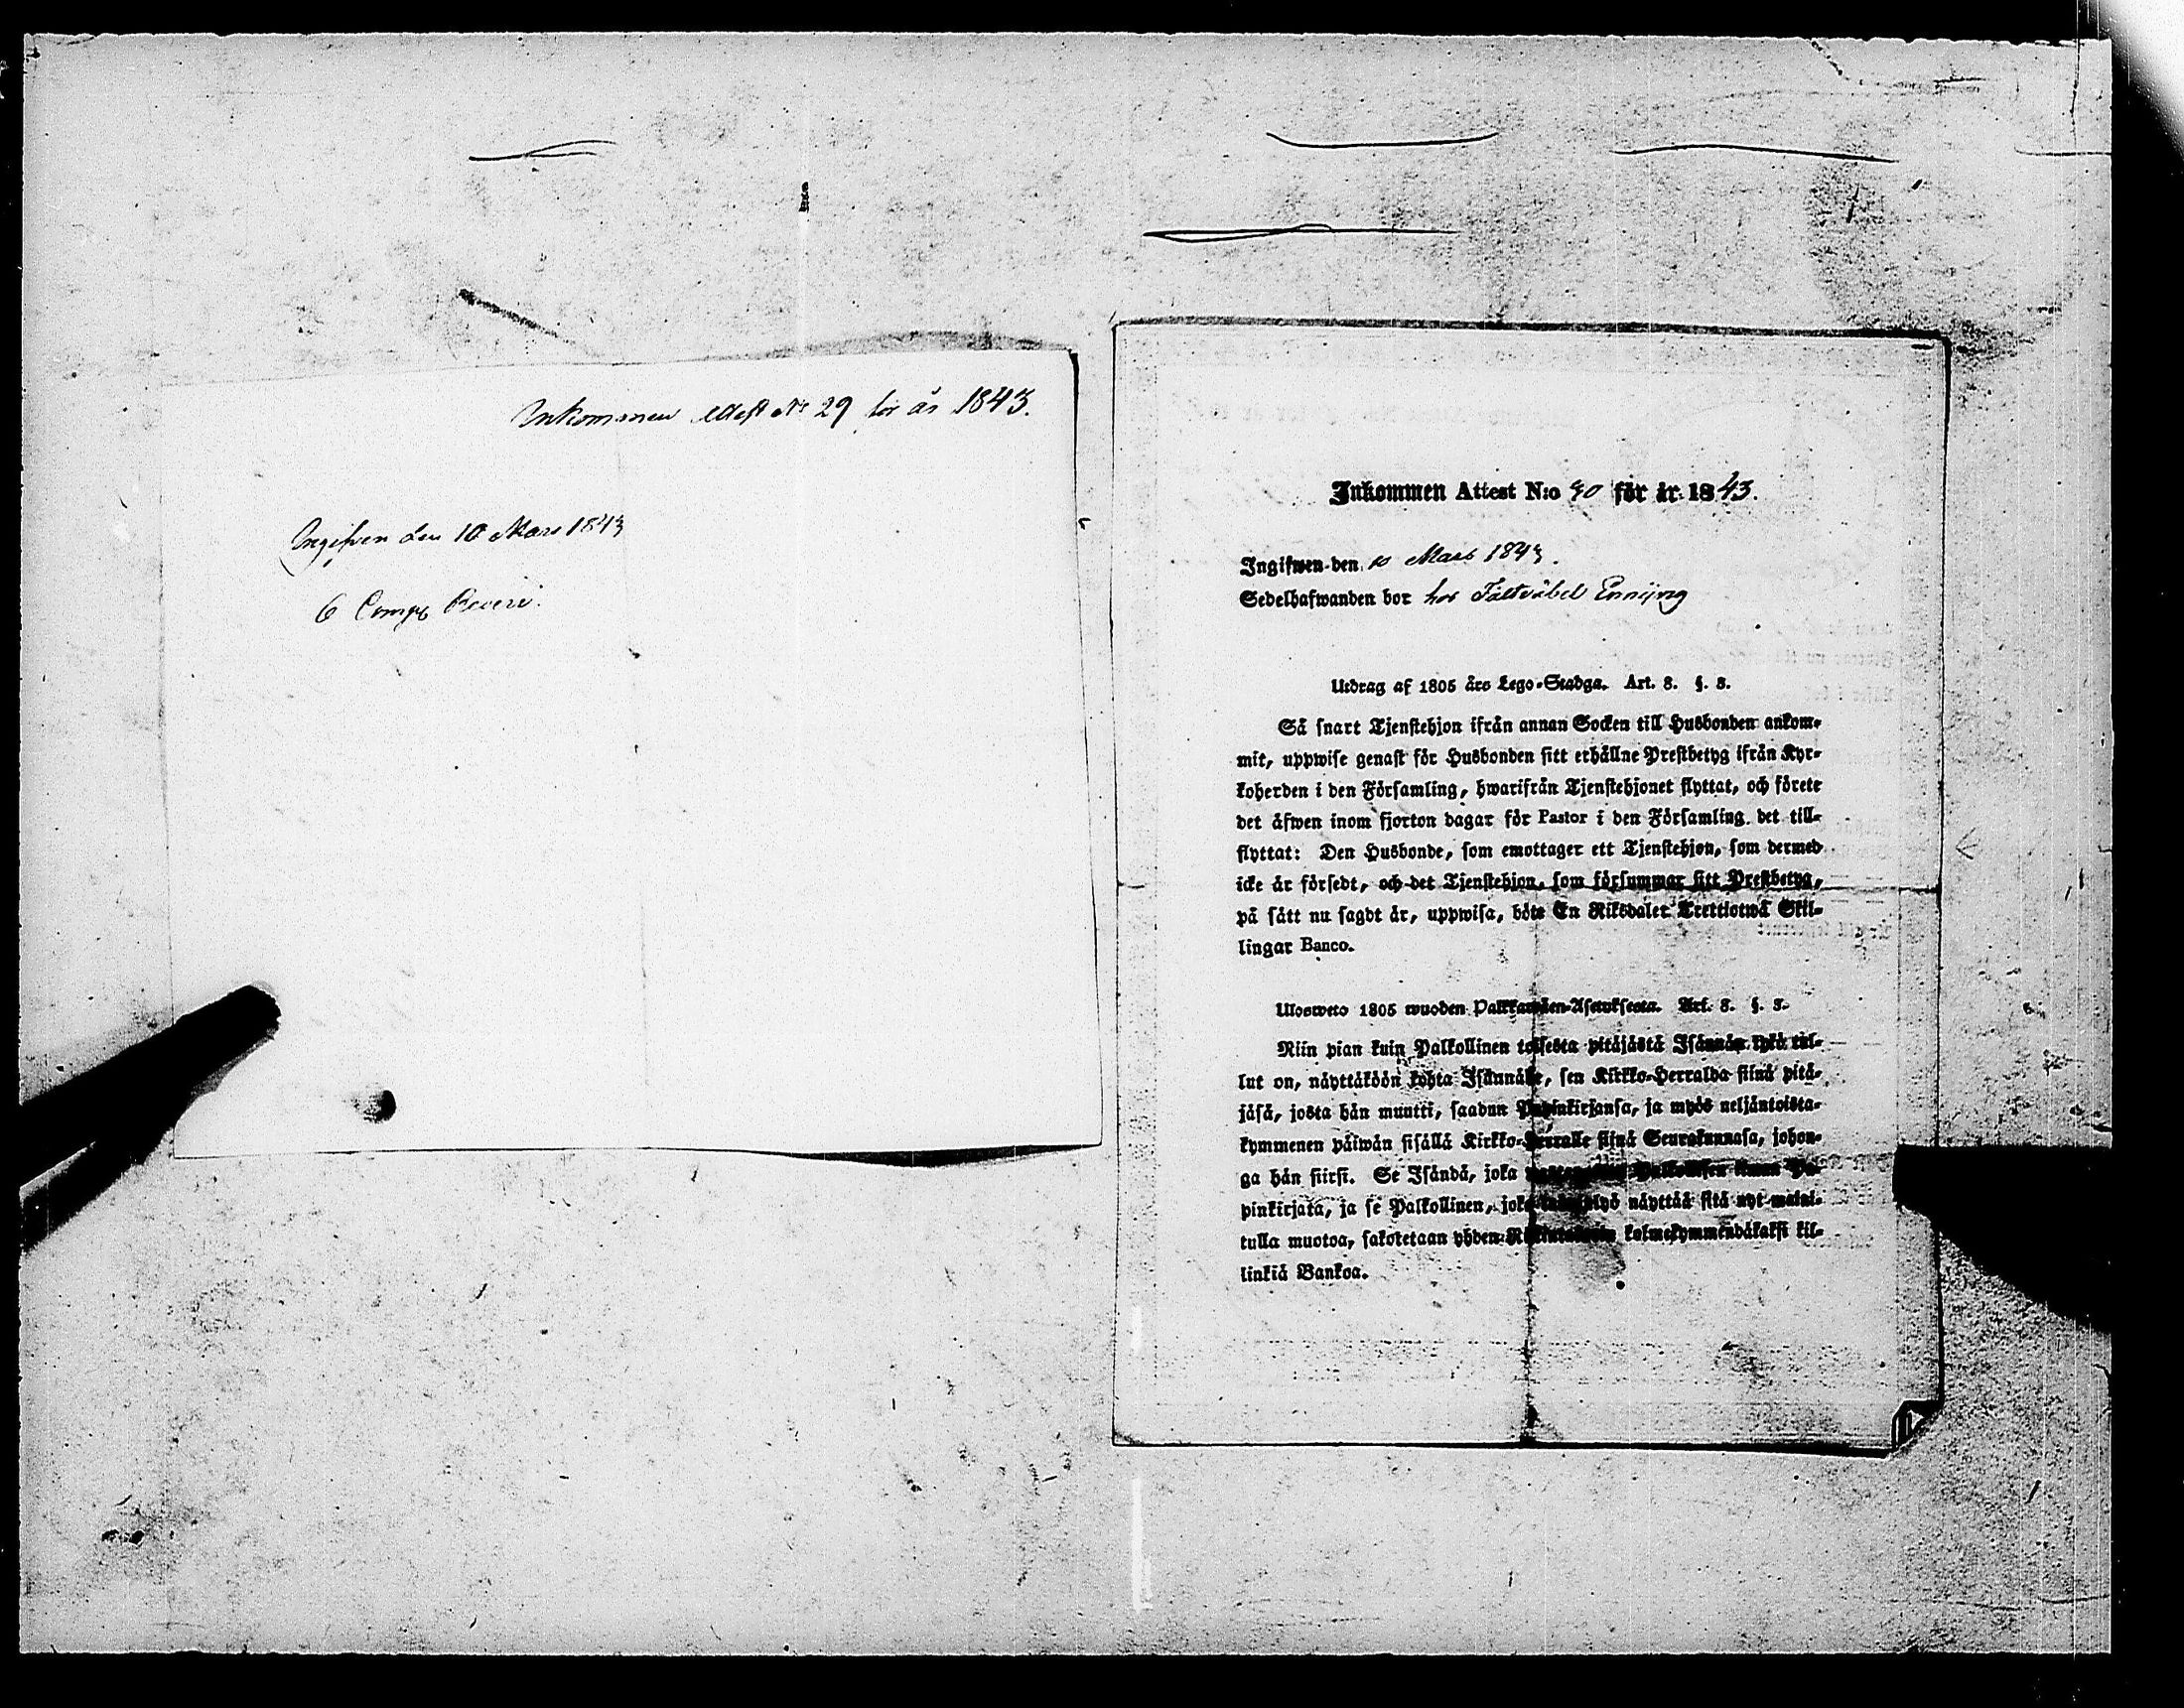 Inkommen Attest No 29 för år 1843.
Ingifven den 10 Mars 1843
6 Comp.
Inkommen Attest N:o 30 för år 1843.
Ingifwen den 10 Mars 1843.
Sedelhafwanden bor hos Fältväbel
Utdrag af 1805 års Lego-Stadga. Art. 8. §. 8.
Så snart Tjenstehjon ifrån annan Socken till Husbonden ankom-
mit, uppwise genast för Husbonden sitt erhållne Prestbetyg ifrån Kyr-
koherden i den Församling, hwarifrån Tjenstehjonet flyttat, och förete
det äfwen inom fjorton dagar för Pastor i den Församling det till-
flyttat: Den Husbonde, som emottager ett Tjenstehjon, som dermed
icke är försedt, och det Tjenstehjon, som försummar sitt Prestbetyg,
på sätt nu sagdt är, uppwisa, böte En Riksdaler Trettiotwå Skil-
lingar Banco.
Ulosweto 1805 wuoden Palkkawäen-Asetuksesta. Art. 8. §. 8.
Niin pian kuin Palkollinen toisesta pitäjästä Isännän tykö tul-
lut on, näyttäköön kohta Isännälle, sen Kirkko-Herralda siinä pitä-
jäsä, josta hän muutti, saadun Papinkirjansa, ja myös neljäntoista-
kymmenen päiwän sisällä Kirkko-Herralle siinä Seurakunnasa, johon-
ga hän siirsi. Se Isändä, joka Palkollisen ilman Pa-
pinkirjata, ja se Palkollinen, joka näyttää sitä nyt maini-
tulla muotoa, sakotetaan yhden kolmekymmendäkaksi kil-
linkiä Bankoa.